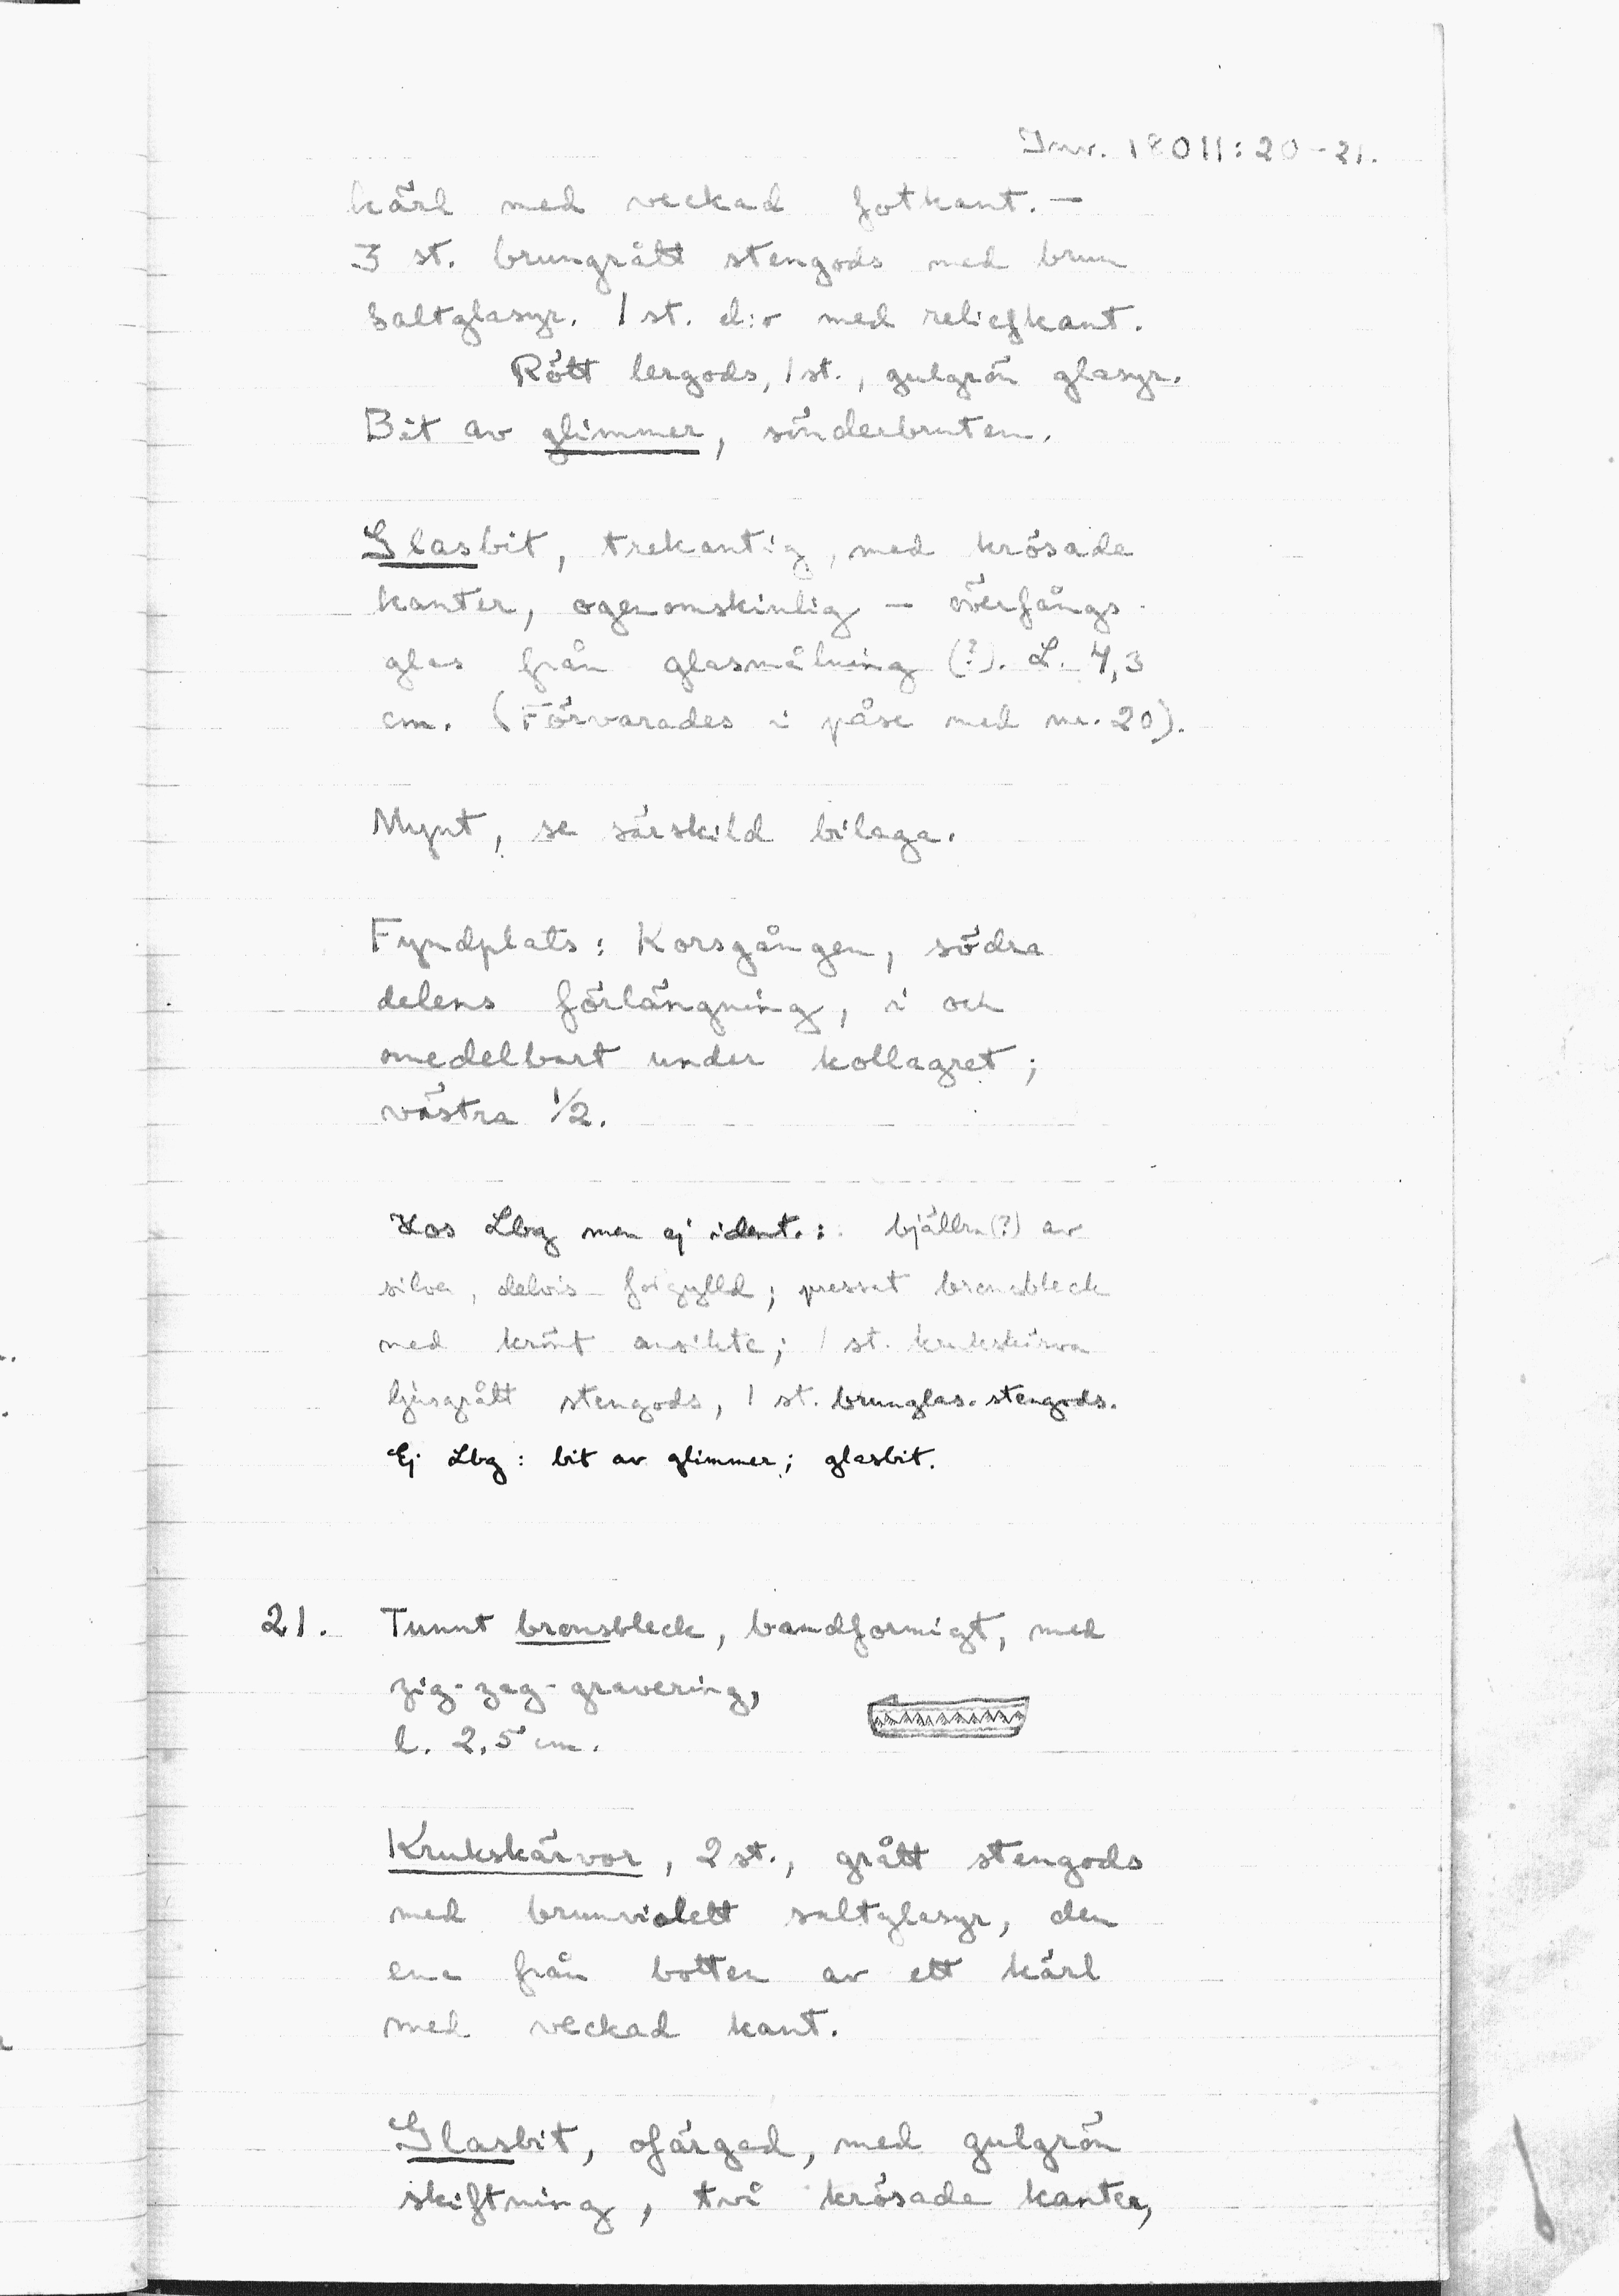 Inv. 18011: 20-21.
kärl med veckad fotkant. —
3 st. brungrått stengods med brun
saltglasyr. 1 st. d:o med reliefkant.
Rött lergods, 1 st., gulgrön glasyr.
Bit av glimmer, sönderbruten.
Glasbit, trekantig, med krösade
kanter, ogenomskinlig — överfångs-
glas från glasmålning (?). L. 4,3
cm. (Förvarades i påse med nr. 20).
Mynt, se särskild bilaga.
Fyndplats: Korsgången, södra
delens förlängning, i och
omedelbart under kollagret;
västra 1/2.
Hos Lbg men ej ident.: bjällra (?) av
silver, delvis förgylld; pressat bronsbleck
med krönt ansikte; 1 st. krukskärva
ljusgrått stengods, 1 st. brunglas. stengods.
Ej Lbg: bit av glimmer; glasbit.
21. Tunnt bronsbleck, bandformigt, med
zig-zag-gravering,
l. 2,5 cm.
Krukskärvor, 2 st., grått stengods
med brunviolett saltglasyr, den
ena från botten av ett kärl
med veckad kant.
Glasbit, ofärgad, med gulgrön
skiftning, två krösade kanter,